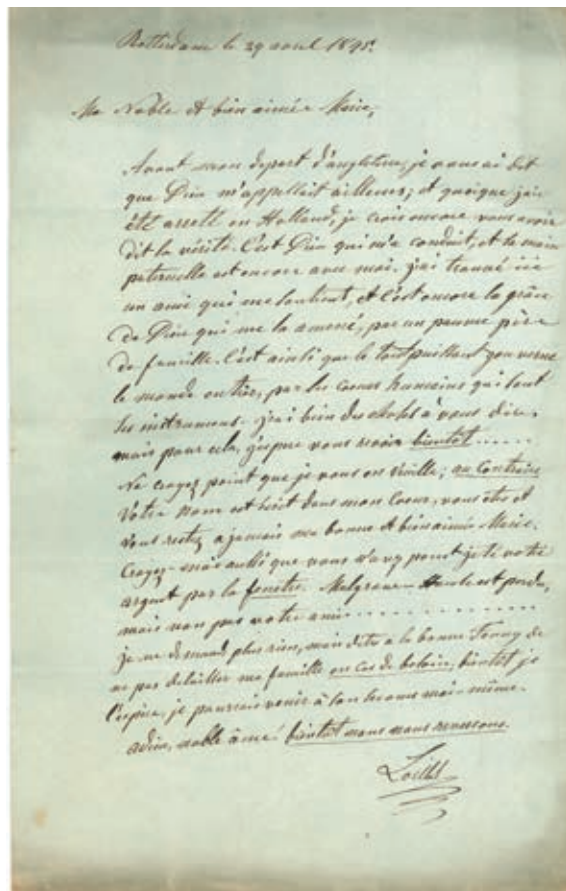 Rotterdam le 29 avril 1845.
Ma Noble et bien aimée Marie,
Avant mon depart d'angleterre, je vous ai dit
que Dieu m'appellait ailleurs; et quoique j'aie
été arreté en Holland, je crois encore vous avoir
dit la vérité. C'est Dieu qui m'a conduit, et sa main
paternelle est encore avec moi. j'ai trouvé ici
un ami qui me soutient, et c'est encore la grâce
de Dieu qui me la amené, par un pauvre père
de famille. C'est ainsi que le tout puissant gouverne
le monde entier, par les coeurs humains qui sont
ses instrumens. j'ai bien des choses à vous dire,
mais pour cela, j'espere vous revoir bientot......
Ne croyez point que je vous en veuille; au contraire
Votre nom est écrit dans mon Coeur, vous êtes et
vous restez a jamais ma bonne et bien aimée Marie.
Croyez-moi aussi que vous n'avez point jeté votre
argent par la fenetre. est perdu,
mais non pas votre ami..............
je ne demand plus rien, mais dites a la bonne Fanny de
ne pas delaisser ma famille en cas de besoin, bientot je
l'espère, je pourrai venir à son secours moi-même.
adieu, noble âme! bientot nous nous reverrons.